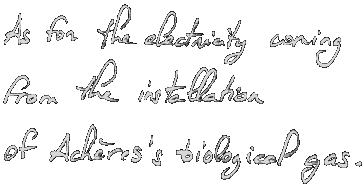 As for the electricity coming
from the installation
of Achères's biological gas.